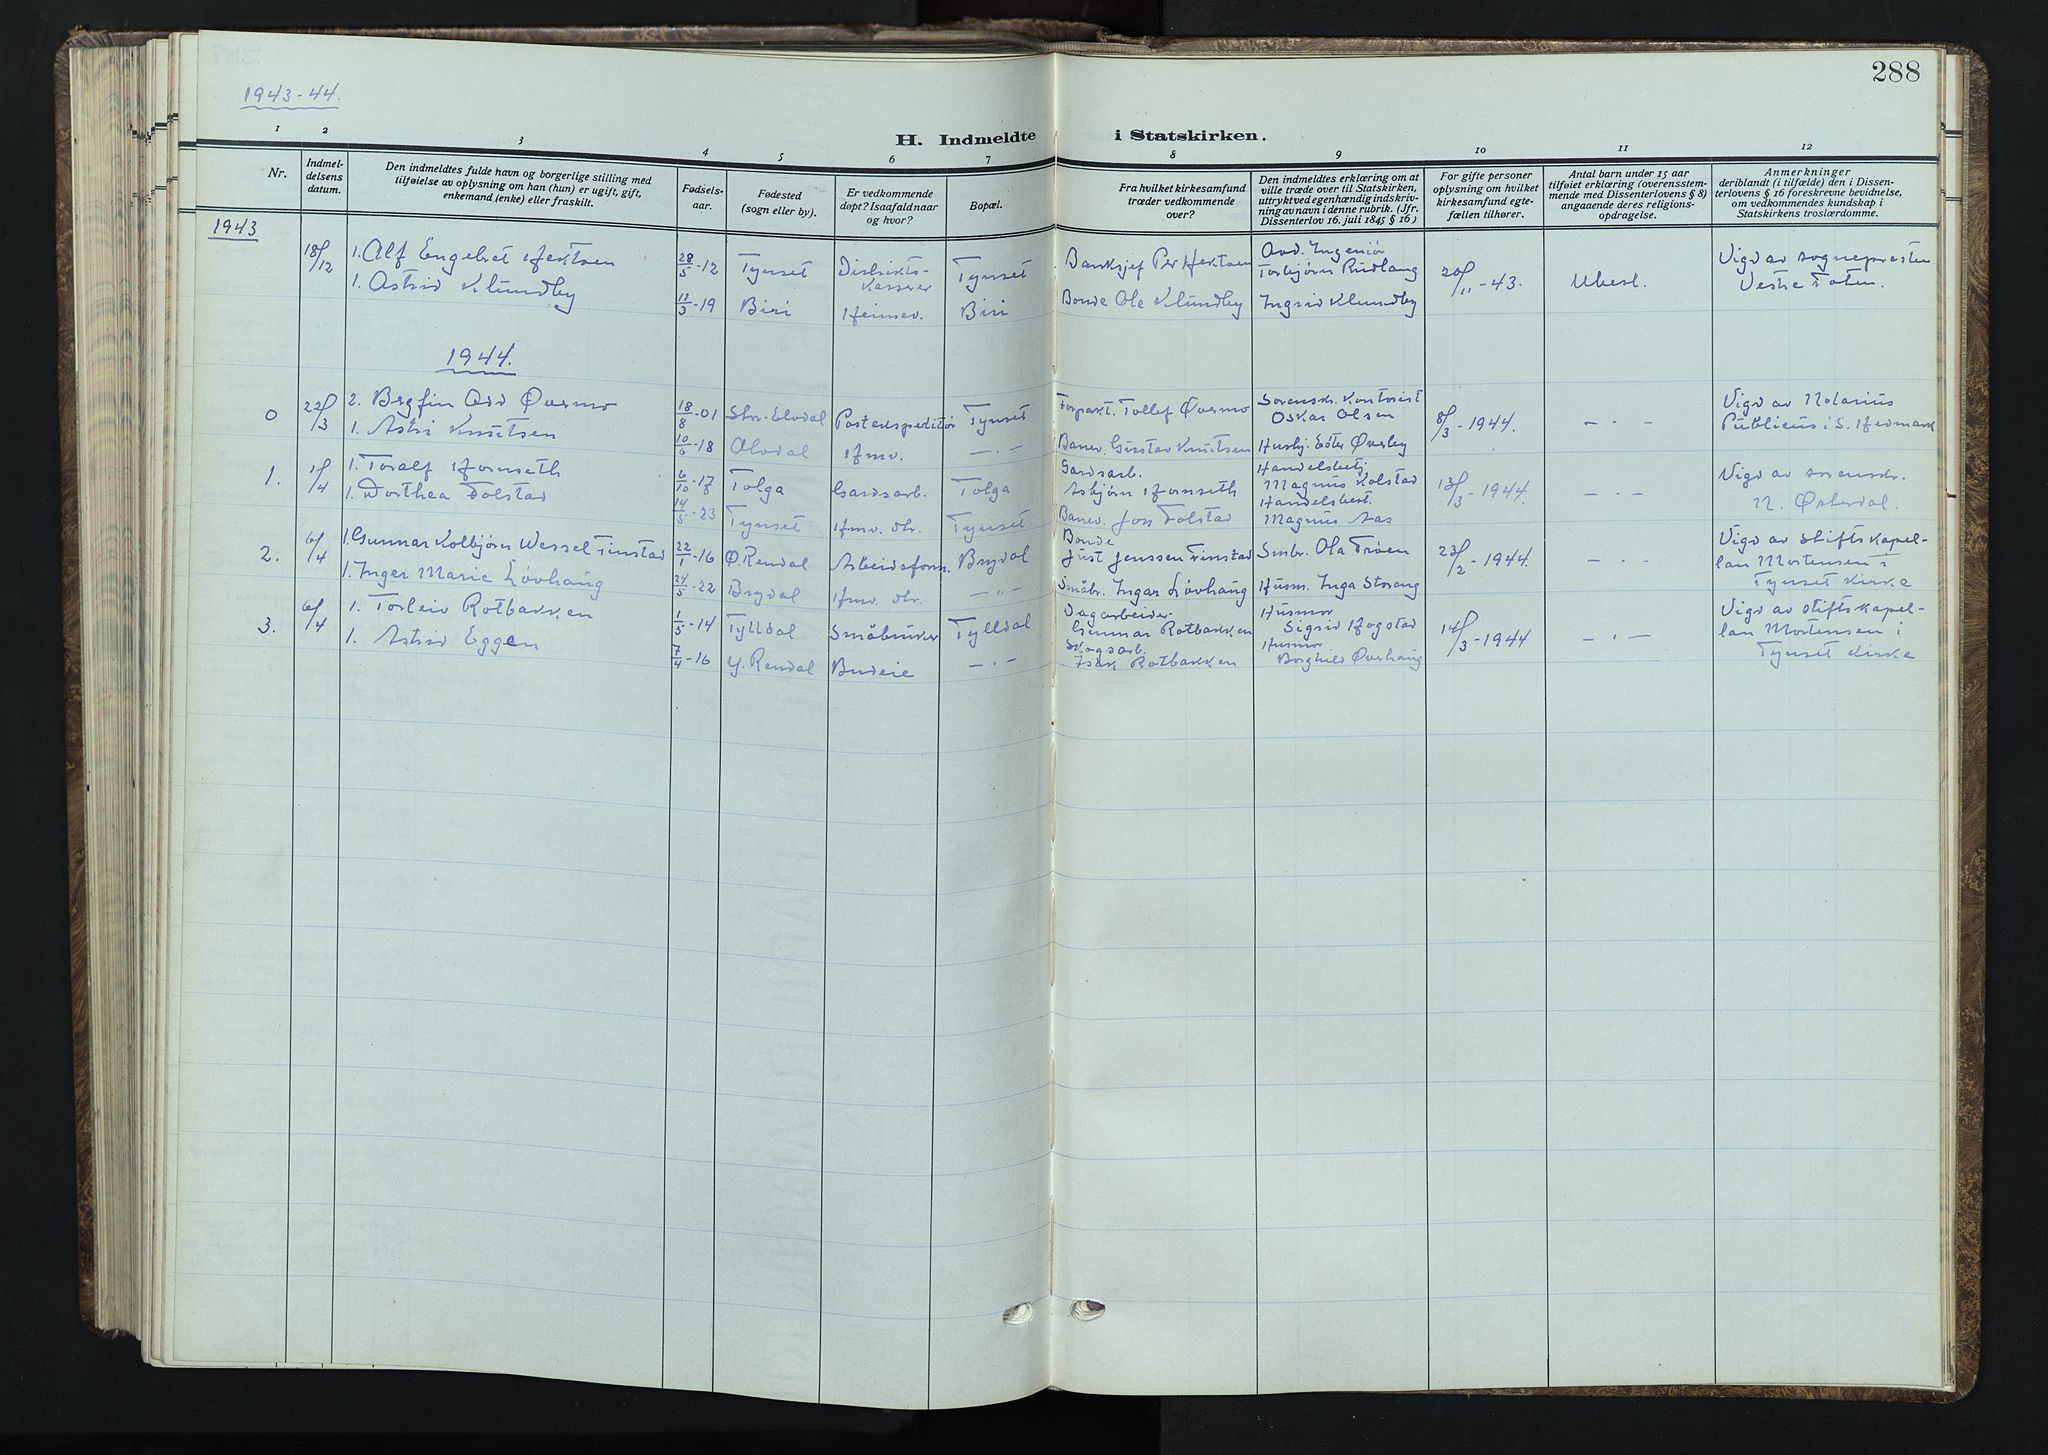 288
1943-44.
H. Indmeldte i Statskirken.
1 2 3 4 5 6 7 8 9 10 11 12
Nr.
Indmel-
delsens
datum.
Den indmeldtes fulde havn og borgerlige stilling med
tilføielse av oplysning om han (hun) er ugift, gift,
enkemand (enke) eller fraskilt.
Fødsels-
aar.
Fødested
(sogn eller by).
Er vedkommende
døpt? Isaafald naar
og hvor?
Bopæl.
Fra hvilket kirkesamfund
træder vedkommende
over?
Den indmeldtes erklæring om at
ville træde over til Statskirken,
uttrykt ved egenhændig indskriv-
ning av navn i denne rubrik. (Jfr.
Dissenterlov 16. juli 1845 § 16)
For gifte personer
oplysning om hvilket
kirkesamfund egte-
fællen tilhører.
Antal barn under 15 aar
tilføiet erklæring (overensstem-
mende med Dissenterlovens § 8)
angaaende deres religions-
opdragelse.
Anmerkninger
deriblandt (i tilfælde) den i Dissen-
terlovens § 16 foreskrevne bevidnelse,
om vedkommendes kundskap i
Statskirkens troslærdomme.
1943
18/12
1. Alf Engebret Hektoen
28/5-12
Tynset
Distrikts-
kasserer
Tynset
Banksjef Per Hektoen
Avd. Ingeniør
Torbjørn Rudlang
20/11-43.
Ubesl.
Vigd av sognepresten
Vestre Toten.
1. Astrid Klundby
11/3-19
Biri
Heimev.
Biri
Bonde Ola Klundby
Ingrid Klundby
1944.
0
22/3
2. Bergfin Odd Øvermo
18/8-01
Stor-Elvdal
Postekspeditør
Tynset
Forpakt. Tollef Øvermo
Sorenskr. Kontorist
Oskar Olsen
8/3-1944.
- . -
Vigd av Notarius
Publicus i S. Hedmark
1. Astri Knutsen
10/6-18
Alvdal
Hmv.
- . -
Banev. Gustav Knutsen
Husbj. Ester Øverby
1.
1/4
1. Toralf Hornseth
6/10-17
Tolga
Gardsarb.
Tolga
Gardsarb.
Asbjørn Hornseth
Handelsbetj.
Magnus Kolstad
13/3-1944.
- . -
Vigd av sorenskr.
N. Østerdal.
1. Dorthea Tolstad
14/5-23
Tynset
Hmv. dtr.
Tynset
Banev. Jon Tolstad
Handelsbest.
Magnus Aas
2.
6/4
1. Gunnar Kolbjørn Wessel Finstad
22/1-16
Ø. Rendal
Arbeidsform.
Brydal
Bonde
Just Jenssen Finstad
Smbr. Ola Trøen
23/2-1944.
- . -
Vigd av stiftskapel-
lan Mortensen i
Tynset Kirke
1. Inger Marie Løvhaug
24/5-22
Brydal
Hmv. dtr.
- " -
Småbr. Ingar Løvhaug
Husm. Inga Storaug
3.
6/4
1. Torleiv Rotbakken
1/5-14
Tylldal
Småbruker
Tylldal
Dagarbeider
Gunnar Rotbakken
Husmor
Sigrid Hogstad
14/3-1944
- . -
Vigd av stiftskapel-
lan Mortensen i
Tynset Kirke
1. Astrid Eggen
7/4-16
Y. Rendal
Budeie
- . -
Skogsarb.
Isak Rotbakken
Husmor
Borghild Øverhaug